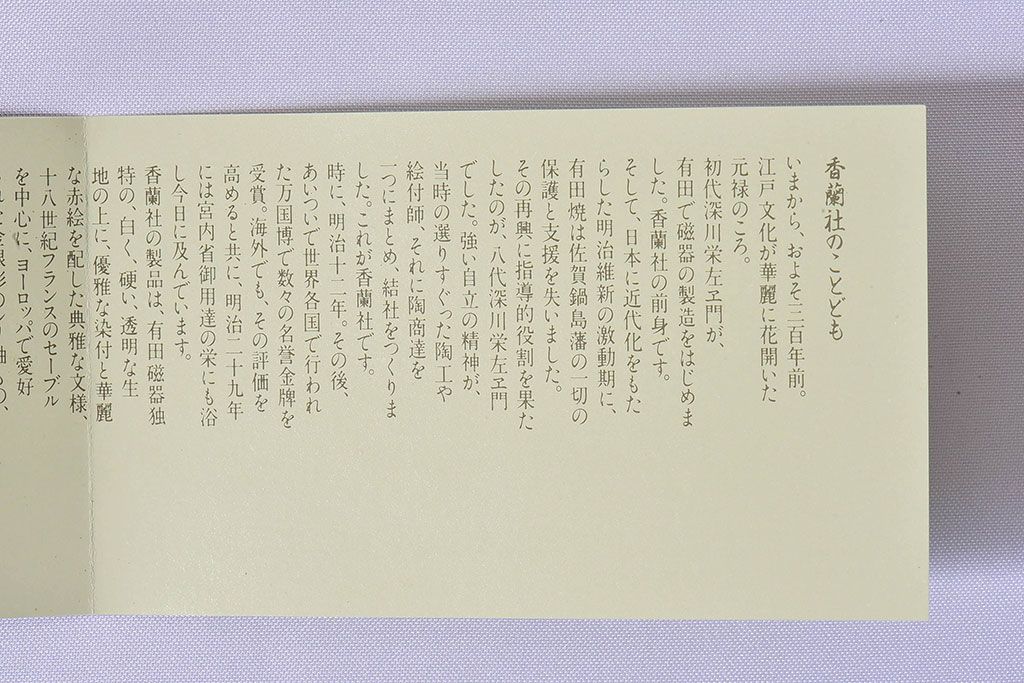 香蘭社のことども
いまから、およそ三百年前。
江戸文化が華麗に花開いた
元禄のころ。
初代深川栄左ヱ門が、
有田で磁器の製造をはじめま
した。香蘭社の前身です。
そして、日本に近代化をもた
らした明治維新の激動期に、
有田焼は佐賀鍋島藩の一切の
保護と支援を失いました。
その再興に指導的役割を果た
したのが、八代深川栄左ヱ門
でした。強い自立の精神が、
当時の選りすぐった陶工や
絵付師、それに陶商達を
一つにまとめ、結社をつくりま
した。これが香蘭社です。
時に、明治十二年。その後、
あいついで世界各国で行われ
た万国博で数々の名誉金牌を
受賞。海外でも、その評価を
高めると共に、明治二十九年
には宮内省御用達の栄にも浴
し今日に及んでいます。
香蘭社の製品は、有田磁器独
特の、白く、硬い、透明な生
地の上に、優雅な染付と華麗
な赤絵を配した典雅な文様、
十八世紀フランスのセーブル
を中心に、ヨーロッパで愛好